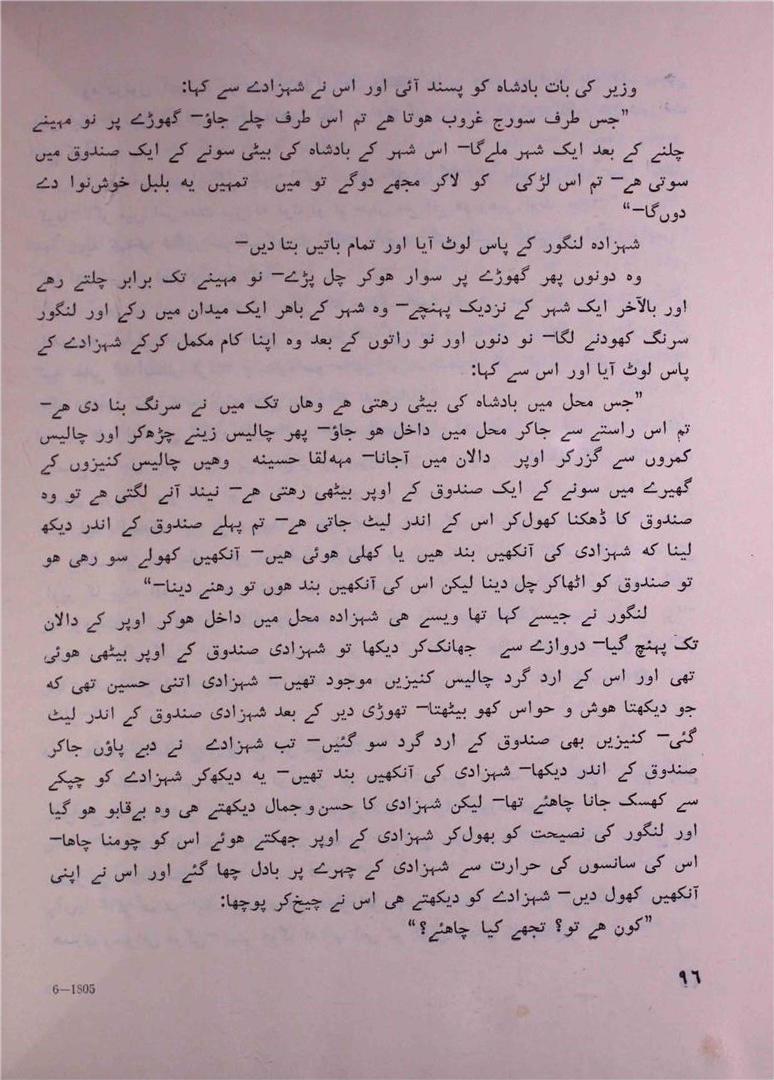 وزیر کی بات بادشاہ کو پسند آئی اور اس نے شہزادے سے کہا:
”جس طرف سورج غروب ہوتا ہے تم اس طرف چلے جاؤ— گھوڑے پر نو مہینے
چلنے کے بعد ایک شہر ملےگا— اس شہر کے بادشاہ کی بیٹی سونے کے ایک صندوق میں
سوتی ہے— تم اس لڑکی کو لاکر مجھے دوگے تو میں تمہیں یہ بلبل خوش‌نوا دے
دوں‌گا—“
شہزادہ لنگور کے پاس لوٹ آیا اور تمام باتیں بتا دیں—
وہ دونوں پھر گھوڑے پر سوار ہوکر چل پڑے— نو مہینے تک برابر چلتے رہے
اور بالآخر ایک شہر کے نزدیک پہنچے— وہ شہر کے باہر ایک میدان میں رکے اور لنگور
سرنگ کھودنے لگا— نو دنوں اور نو راتوں کے بعد وہ اپنا کام مکمل کرکے شہزادے کے
پاس لوٹ آیا اور اس سے کہا:
”جس محل میں بادشاہ کی بیٹی رہتی ہے وہاں تک میں نے سرنگ بنا دی ہے—
تم اس راستے سے جاکر محل میں داخل ہو جاؤ— پھر چالیس زینے چڑھ‌کر اور چالیس
کمروں سے گزرکر اوپر دالان میں آجانا— مہ‌لقا حسینہ وہیں چالیس کنیزوں کے
گھیرے میں سونے کے ایک صندوق کے اوپر بیٹھی رہتی ہے— نیند آنے لگتی ہے تو وہ
صندوق کا ڈھکنا کھول‌کر اس کے اندر لیٹ جاتی ہے— تم پہلے صندوق کے اندر دیکھ
لینا کہ شہزادی کی آنکھیں بند ہیں یا کھلی ہوئی ہیں— آنکھیں کھولے سو رہی ہو
تو صندوق کو اٹھاکر چل دینا لیکن اس کی آنکھیں بند ہوں تو رہنے دینا—“
لنگور نے جیسے کہا تھا ویسے ہی شہزادہ محل میں داخل ہوکر اوپر کے دالان
تک پہنچ گیا— دروازے سے جھانک‌کر دیکھا تو شہزادی صندوق کے اوپر بیٹھی ہوئی
تھی اور اس کے ارد گرد چالیس کنیزیں موجود تھیں— شہزادی اتنی حسین تھی کہ
جو دیکھتا ہوش و حواس کھو بیٹھتا— تھوڑی دیر کے بعد شہزادی صندوق کے اندر لیٹ
گئی— کنیزیں بھی صندوق کے ارد گرد سو گئیں— تب شہزادے نے دبے پاؤں جاکر
صندوق کے اندر دیکھا— شہزادی کی آنکھیں بند تھیں— یہ دیکھ‌کر شہزادے کو چپکے
سے کھسک جانا چاہئے تھا— لیکن شہزادی کا حسن و جمال دیکھتے ہی وہ بے‌قابو ہو گیا
اور لنگور کی نصیحت کو بھول‌کر شہزادی کے اوپر جھکتے ہوئے اس کو چومنا چاہا—
اس کی سانسوں کی حرارت سے شہزادی کے چہرے پر بادل چھا گئے اور اس نے اپنی
آنکھیں کھول دیں— شہزادے کو دیکھتے ہی اس نے چیخ‌کر پوچھا:
”کون ہے تو؟ تجھے کیا چاہئے؟“
۹۶
6—1805